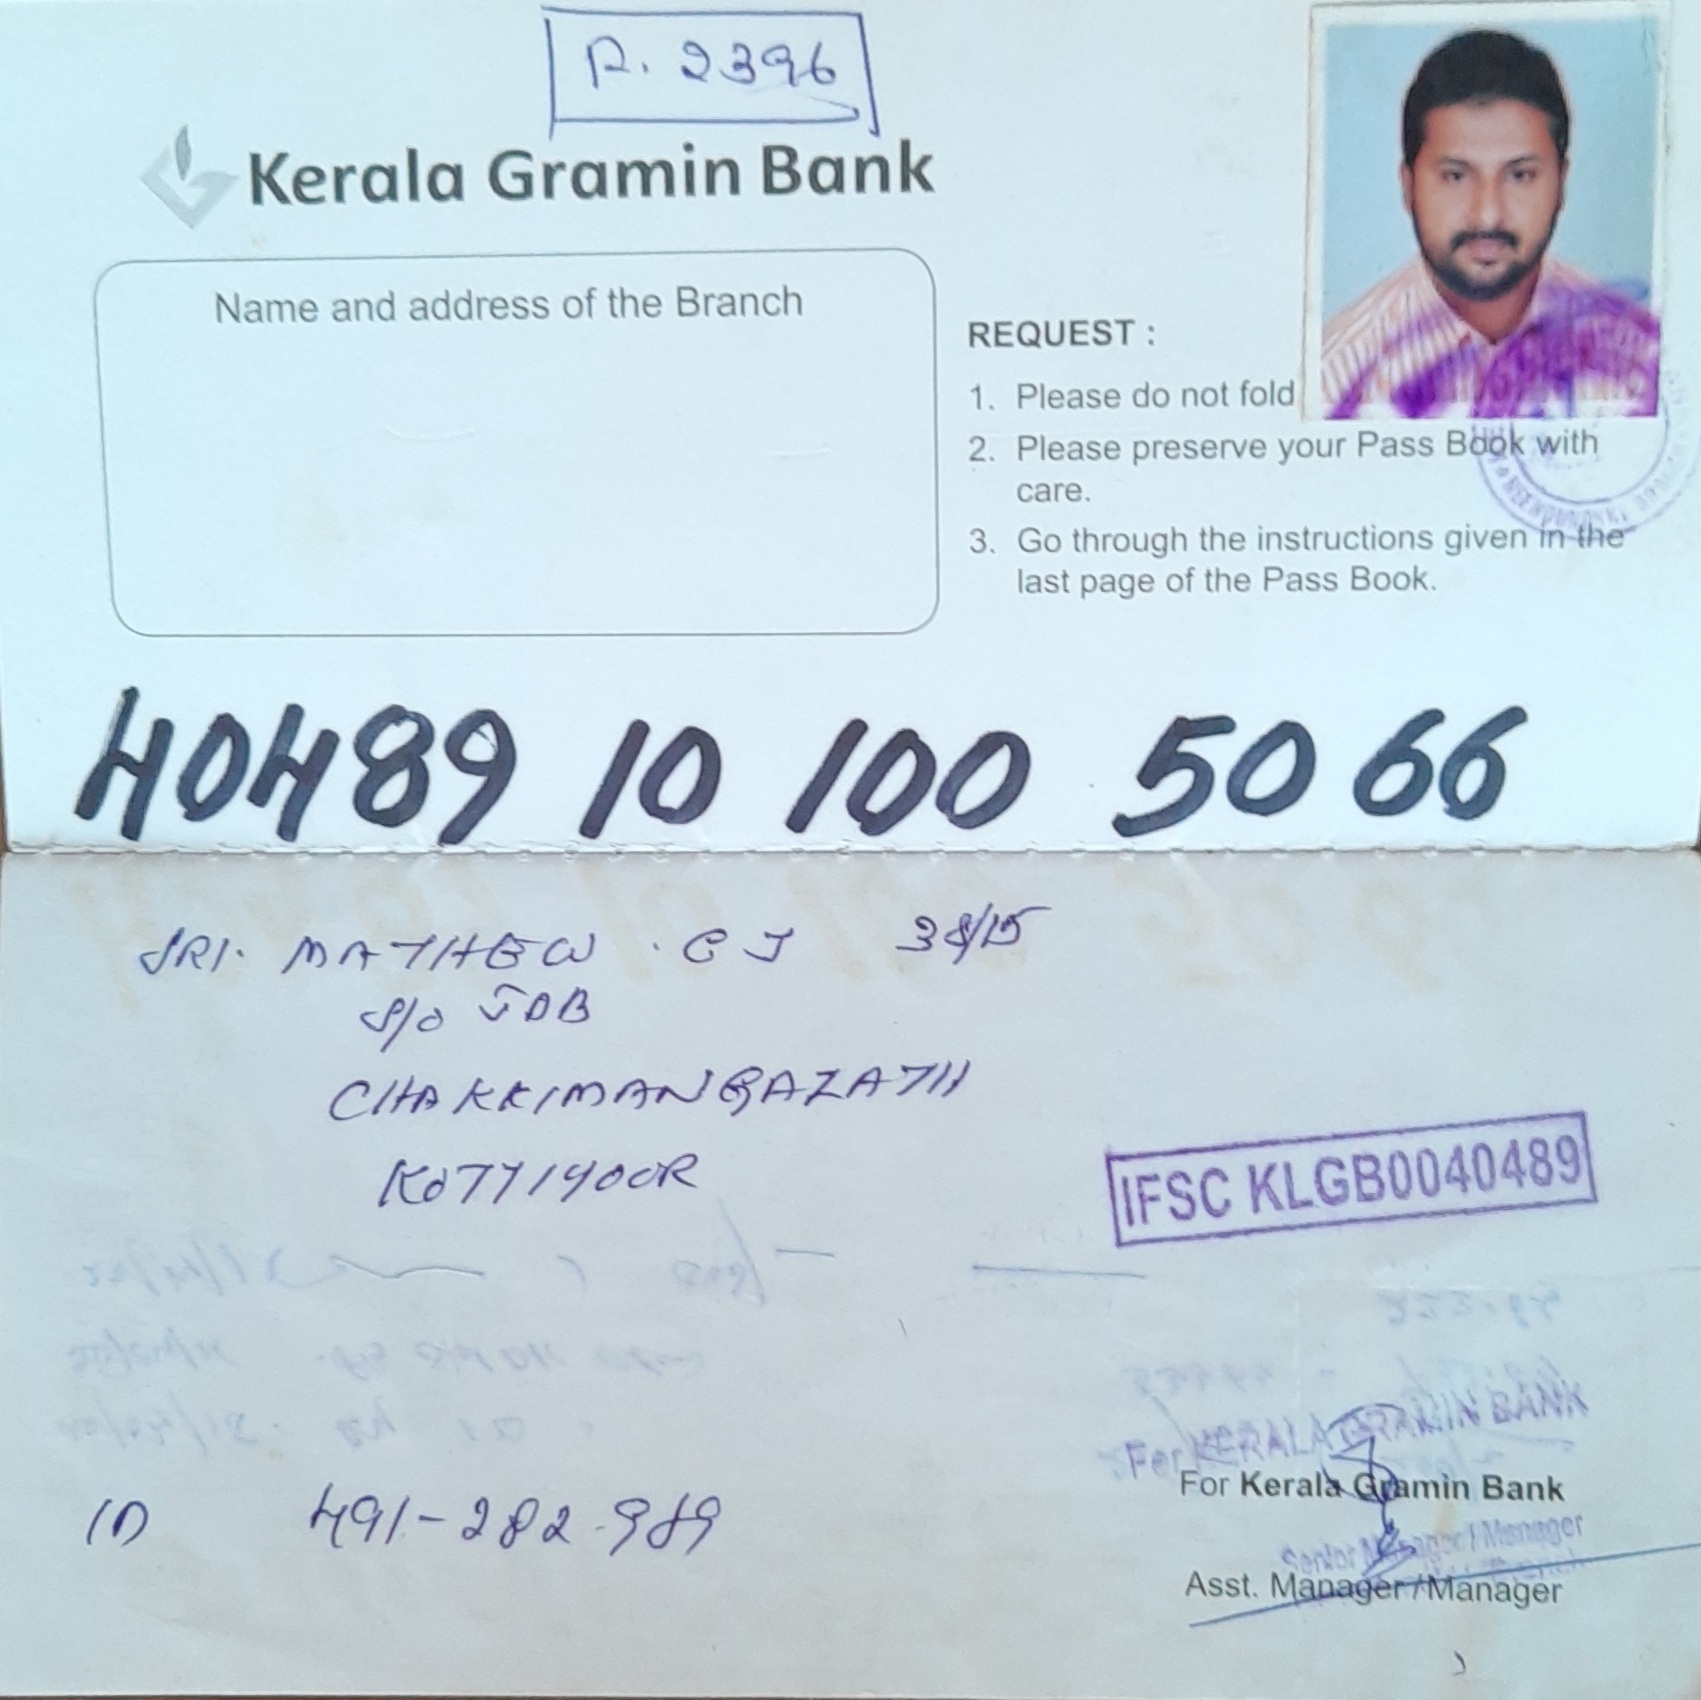 R. 2396
Kerala Gramin Bank
Name and address of the Branch
REQUEST :
1. Please do not fold
2. Please preserve your Pass Book with
care.
3. Go through the instructions given in the
last page of the Pass Book.
40489 10 100 50 66
SRI. MATHEW . C J 38/15
S/O JOB
CHAKKIMANGALATH
KOTTIYOOR
IFSC KLGB0040489
For KERALA GRAMIN BANK
For Kerala Gramin Bank
Senior Manager / Manager
Asst. Manager / Manager
ID 491-282-989